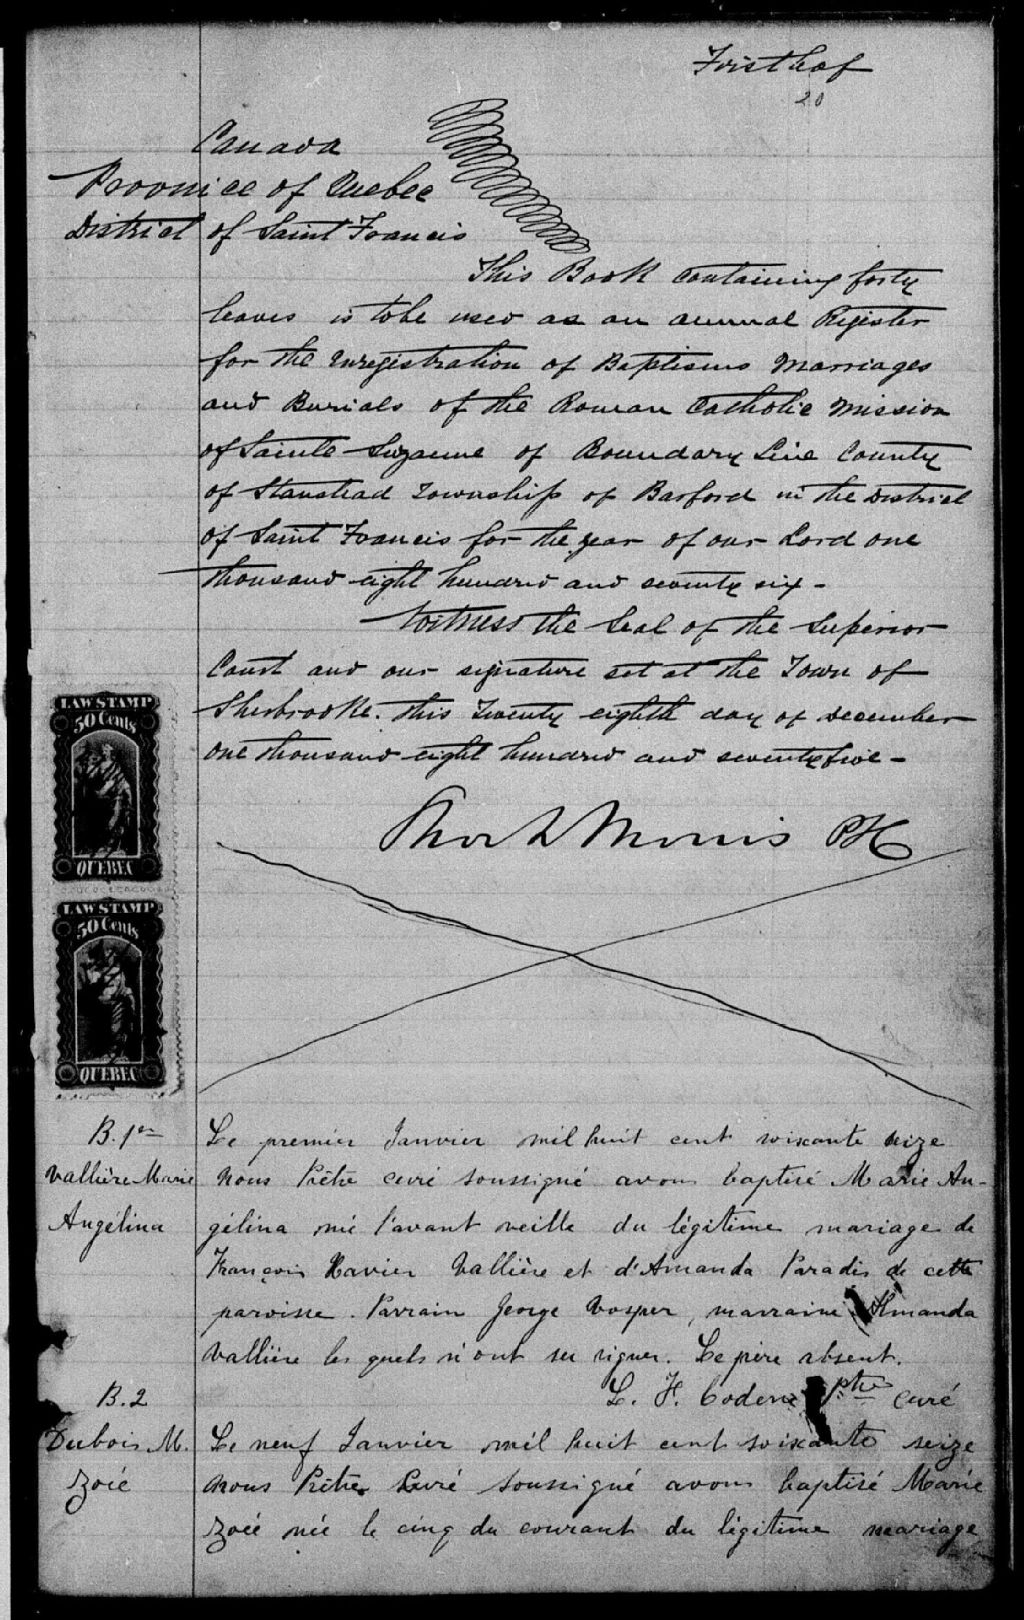 First leaf
20
Canada
Province of Quebec
District of Saint Francis
This Book containing forty
leaves is to be used as an annual Register
for the enregistration of Baptisms Marriages
and Burials of the Roman Catholic Mission
of Sainte Suzanne of Boundary Line County
of Stanstead Township of Barford in the District
of Saint Francis for the year of our Lord one
thousand eight hundred and seventy six -
Witness the Seal of the Superior
Court and our signature set at the Town of
Sherbrooke. this Twenty eighth day of December
one thousand eight hundred and seventy five -
LAW STAMP
50 Cents
QUEBEC
Morris
LAW STAMP
50 Cents
QUEBEC
B. 1er
Vallière Marie
Angélina
Le premier Janvier mil huit cent soixante seize
nous Prêtre curé soussigné avons baptisé Marie An-
gélina née l'avant veille du légitime mariage de
François Xavier Vallière et d'Amanda Paradis de cette
paroisse. Parrain George Vosper, marraine Amanda
Vallière les quels n'ont su signer. Le père absent.
L. H. Coderre Ptre curé
B. 2
Dubois M.
Zoée
Le neuf Janvier mil huit cent soixante seize
nous Prêtre Curé soussigné avons baptisé Marie
Zoée née le cinq du courant du légitime mariage